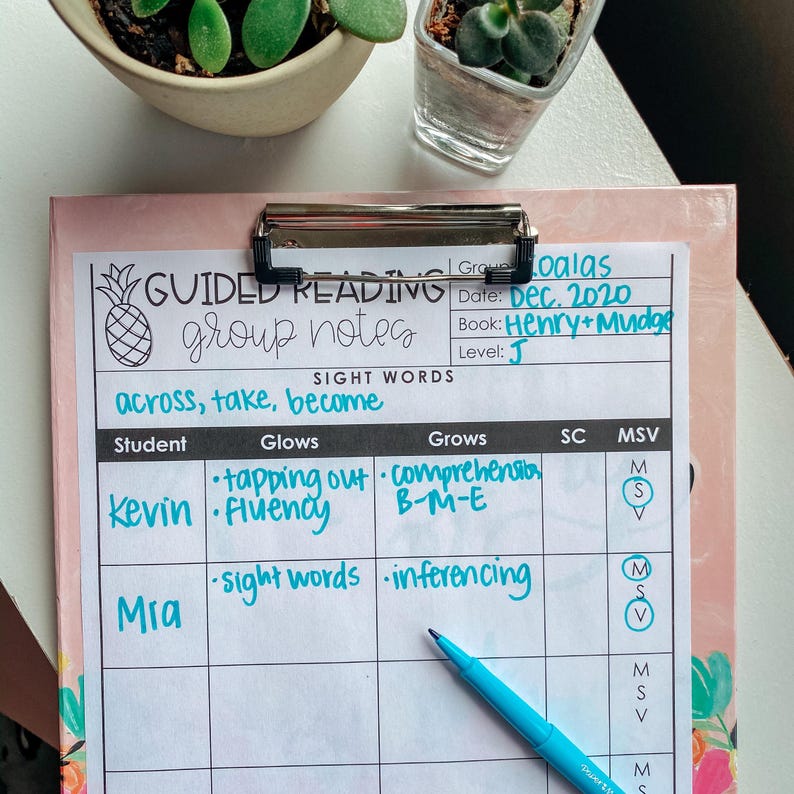 GUIDED READING
group notes
Date: Dec. 2020
Book: Henry+Mudge
Level: J
SIGHT WORDS
across, take, become
Student Glows Grows SC MSV
Kevin
• tapping out
• fluency
• comprehension
B-M-E
M
S
V
Mia
• sight words
• inferencing
M
S
V
M
S
V
M
S